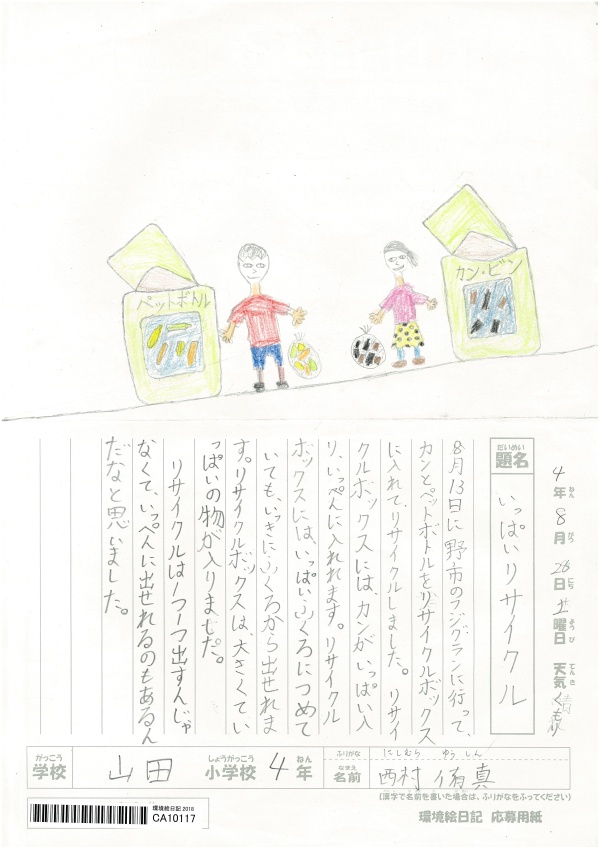 ペットボトル
カン・ビン
4年8月 日土曜日 天気くもり
ねん がつ にち ようび てんき
だいめい
題名
いっぱいリサイクル
8月13日に野市のフジグランに行って、
カンとペットボトルをリサイクルボックス
に入れて、リサイクルしました。リサイ
クルボックスには、カンがいっぱい入
り、いっぺんに入れれます。リサイクル
ボックスには、いっぱいふくろにつめて
いても、いっきにふくろから出せれま
す。リサイクルボックスは大きくてい
っぱいの物が入りました。
リサイクルは一つ一つ出すんじゃ
なくて、いっぺんに出せれるのもあるん
だなと思いました。
がっこう しょうがっこう ねん
学校 山田 小学校 4年
ふりがな にしむら ゆうしん
なまえ
名前 西村 侑真
(漢字で名前を書いた場合は、ふりがなをふってください)
環境絵日記 応募用紙
環境絵日記 2018
CA10117